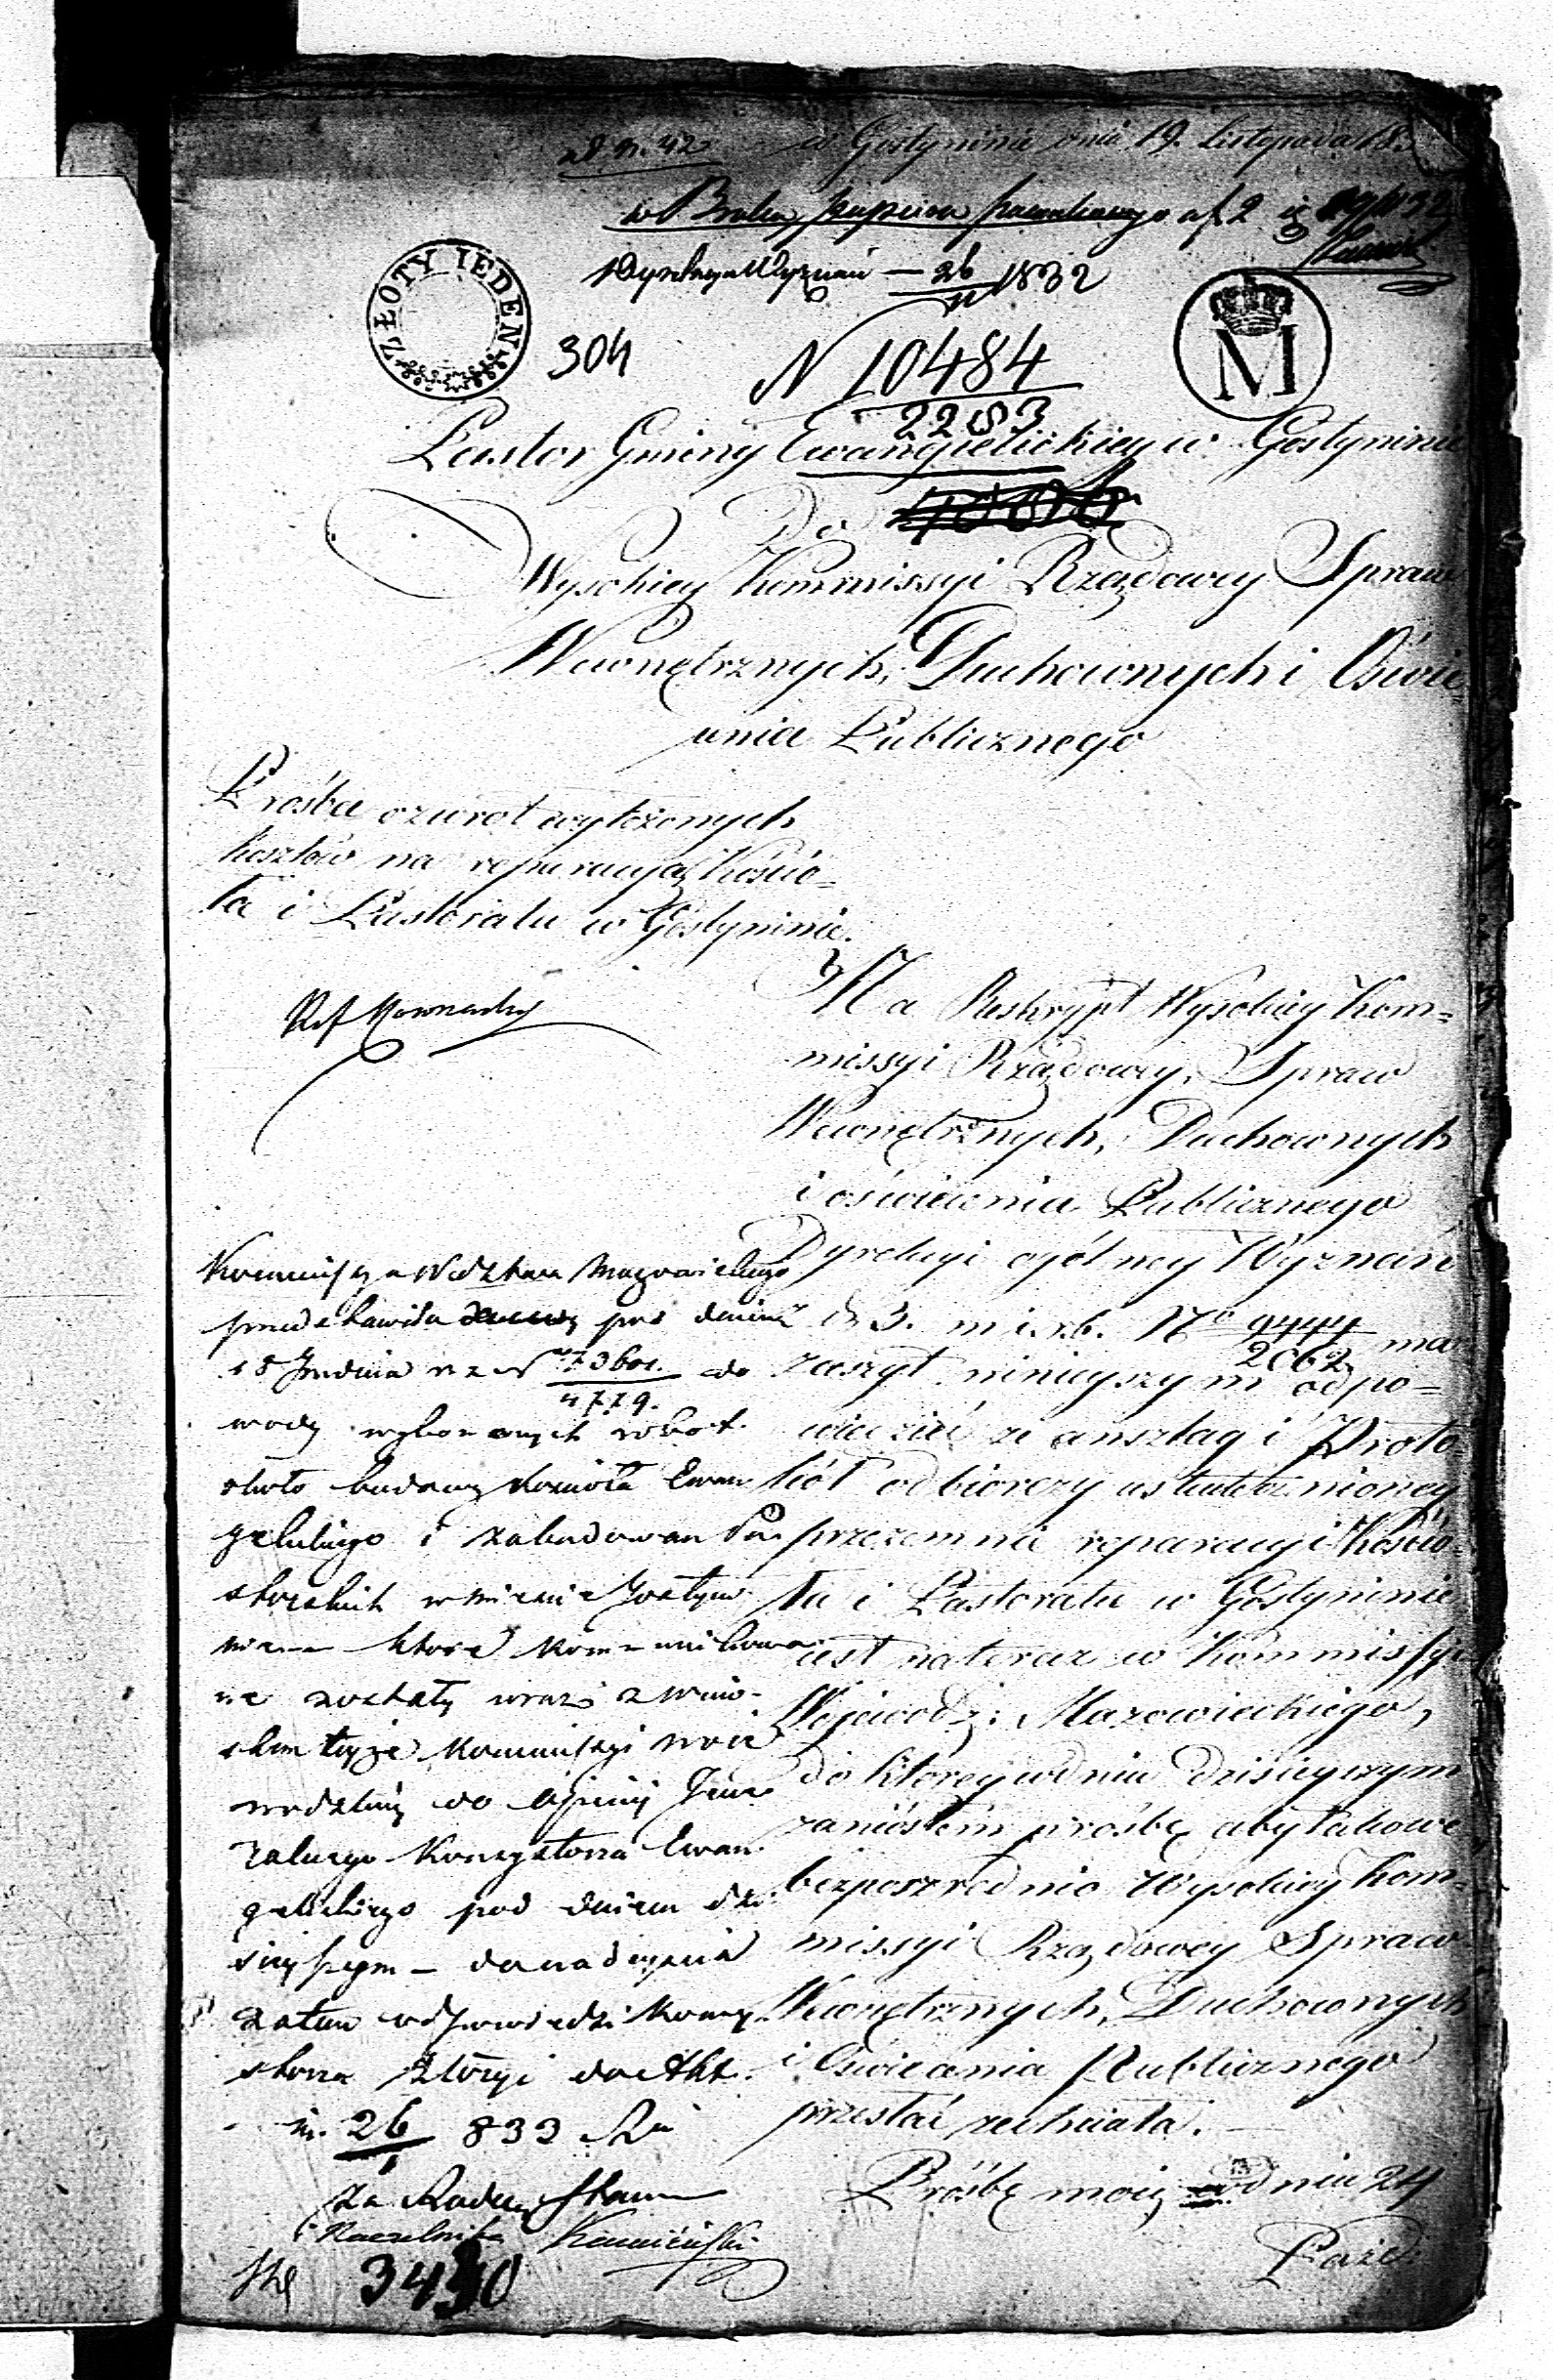 ad N. 42
w Gostyninie dnia 19. Listopada 18
w Braku papieru
1832
ZŁOTY IEDEN
304
N 10484
2283
M
Pastor Gminy Ewangielickiey w Gostyninie
Do
Wysokiey Kommissyi Rządowey Spraw
Wewnętrznych, Duchownych i Oświe
cenia Publicznego
Prośba o zwrot wyłożonych
kosztów na reparacyą Kościo=
ła i Pastoratu w Gostyninie.
Na Reskrypt Wysokiey Kom=
missyi Rządowey, Spraw
Wewnętrznych, Duchownych
i oświecenia Publicznego
Dyrekcyi ogólney Wyznań
d 3. m. i r. b. No 9444 ma
2062
zaszyt ninieyszym odpo=
wiedzieć że anszlag i Proto=
kół odbiorczy uskutecznioney
przezemnie reparacyi Kościo=
ła i Pastoratu w Gostyninie
iest na teraz w Kommissyi
Wojewodz: Mazowieckiego,
do ktorey w dniu dzisieyszym
zaniosłem prośbę aby takowe
bezposzrednio Wysokiey Kom=
missyi Rządowey Spraw
Wewnętrznych, Duchownych
i Oświecenia Publicznego
przesłać zechciała. —
Prośbę moię dnia 24
Paźd:
Kommissya Wdztwa Mazowieckiego
przedstawiła pod dniem
18 Grudnia
4779.
wody wykonanych robot
około budowy kościoła Ewan
gelickiego i zabudowan Pa
storskich w mieście Gostyni
nie — które kommunikowa
ne zostały wraz z wnio-
skiem teyże Kommissyi woie
wodzkiey do opinii Jene
ralnego Konsystorza Ewan
gelickiego pod dniem dzi
sieyszym — do nadeyścia
zatem odpowiedzi Konsy
storza złożyć do Akt.
26 833
Za Radcę Stanu
Naczelnika Kamiński
3430